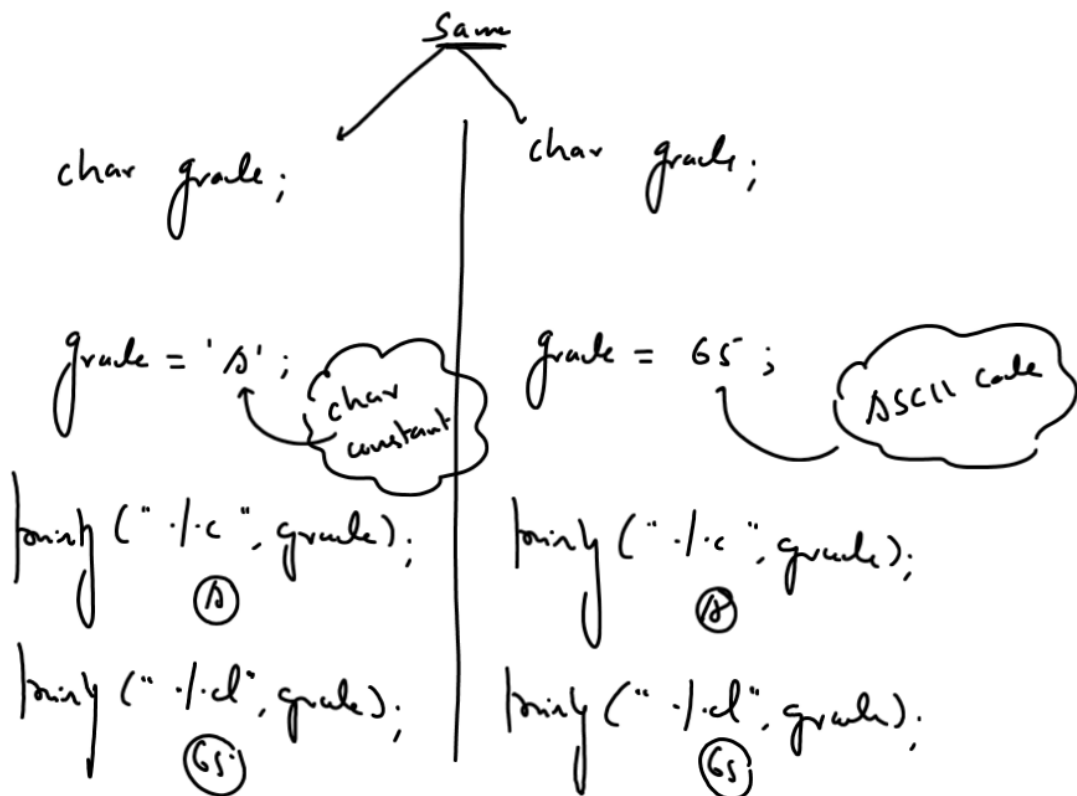 Same
char grade;
grade = 'A';
char
constant
printf ("%c", grade);
A
printf ("%d", grade);
65
char grade;
grade = 65;
ASCII code
printf ("%c", grade);
A
printf ("%d", grade);
65